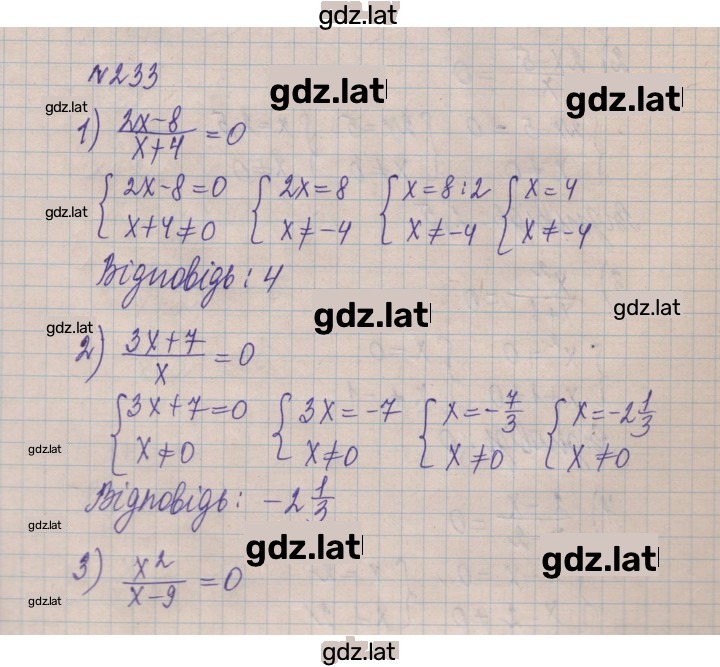 gdz.lat
№233
gdz.lat gdz.lat gdz.lat
1) (2x-8)/(x+4) = 0
gdz.lat
{2x-8=0 {2x=8 {x=8:2 {x=4
{x+4≠0 {x≠-4 {x≠-4 {x≠-4
Відповідь: 4
gdz.lat gdz.lat gdz.lat
2) (3x+7)/x = 0
{3x+7=0 {3x=-7 {x=-7/3 {x=-2 1/3
{x≠0 {x≠0 {x≠0 {x≠0
gdz.lat
Відповідь: -2 1/3
gdz.lat
gdz.lat gdz.lat
3) x²/(x-9) = 0
gdz.lat
gdz.lat